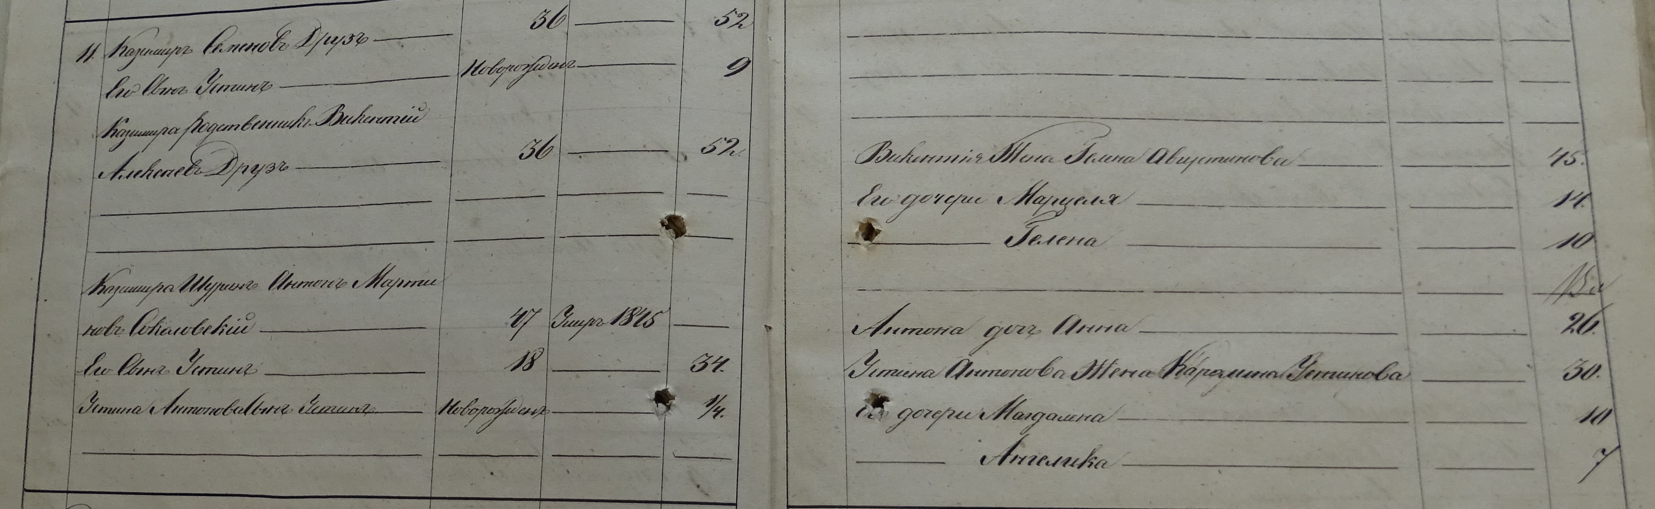 36 52
11. Казимиръ Семеновъ Друзъ
Его Сынъ Устинъ Новорожденъ 9
Казимира родственникъ Викентій
Алексеевъ Друзъ 36 52.
Казимира Шуринъ Антонъ Марти
новъ Соколовскій 47 Умеръ 1845
Его Сынъ Устинъ 18 34.
Устина Антонова Сынъ Устинъ Новорожденъ 1/4.
Викентія Жена Гелена Августинова 45.
Его дочери Марцеля 14.
Гелена 10
Антона дочь Анна 26.
Устина Антонова Жена Каролина Устинова 30.
Его дочери Магдалена 10
Ангелика 7